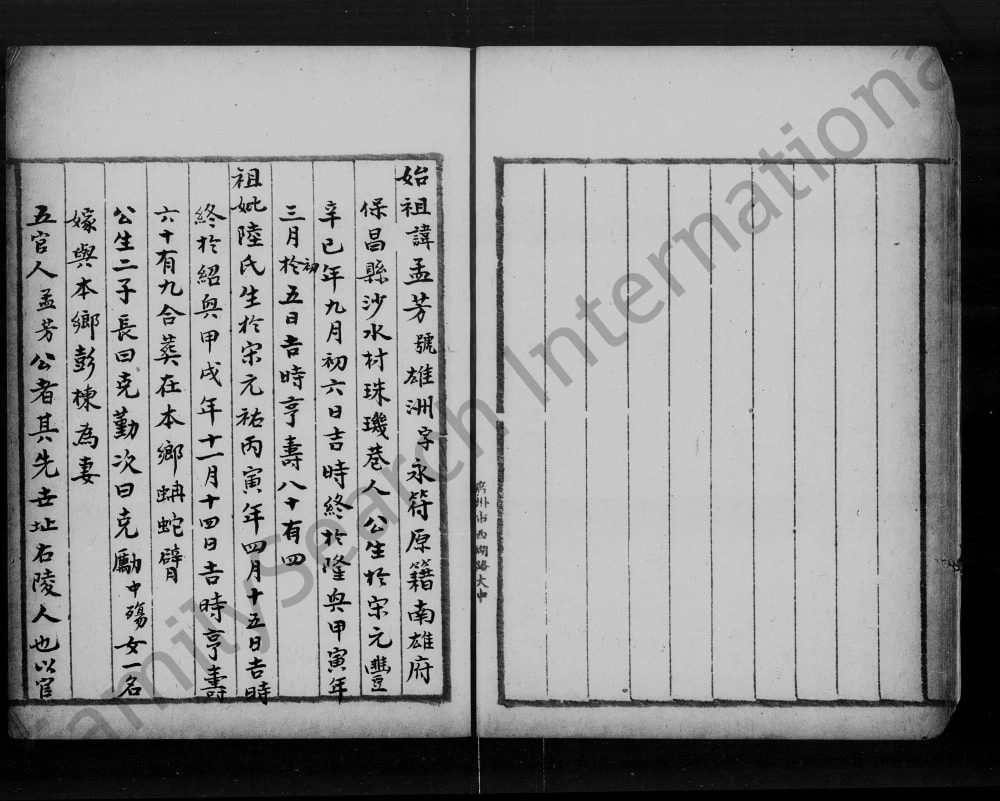 始祖諱孟芳號雄洲字永符原籍南雄府
保昌縣沙水村珠璣巷人公生於宋元豐
辛巳年九月初六日吉時終於隆興甲寅年
三月於初五日吉時亨壽八十有四
祖妣陸氏生於宋元祐丙寅年四月十五日吉時
終於紹興甲戌年十一月十四日吉時亨壽
六十有九合葬在本鄉蚺蛇臂
公生二子長曰克勤次曰克勵中殤女一名
嫁與本鄉彭棟為妻
五官人孟芳公者其先世址石陵人也以官
廣州市西湖路大中
FamilySearch International